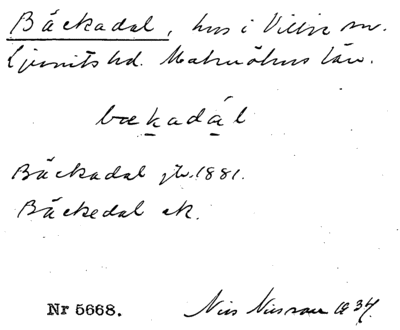 Bäckadal, hus i Villie sn.
Ljunits hd. Malmöhus län.
bækadál
Bäckadal jb. 1881.
Bäckedal ek.
Nr 5668. Nils Nilsson 1934.